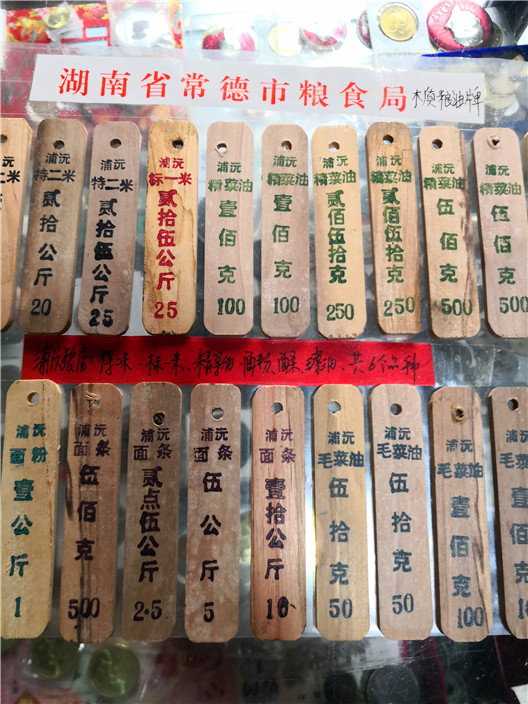 湖南省常德市粮食局 木质粮油牌
米
浦沅
特二米
贰拾公斤
20
浦沅
特二米
贰拾伍公斤
25
浦沅
标一米
贰拾伍公斤
25
浦沅
精菜油
壹佰克
100
浦沅
精菜油
壹佰克
100
浦沅
精菜油
贰佰伍拾克
250
浦沅
精菜油
贰佰伍拾克
250
浦沅
精菜油
伍佰克
500
浦沅
精菜油
伍佰克
500
共6个品种
浦沅
面粉
壹公斤
1
浦沅
面条
伍佰克
500
浦沅
面条
贰点伍公斤
2·5
浦沅
面条
伍公斤
5
浦沅
面条
壹拾公斤
10
浦沅
毛菜油
伍拾克
50
浦沅
毛菜油
伍拾克
50
浦沅
毛菜油
壹佰克
100